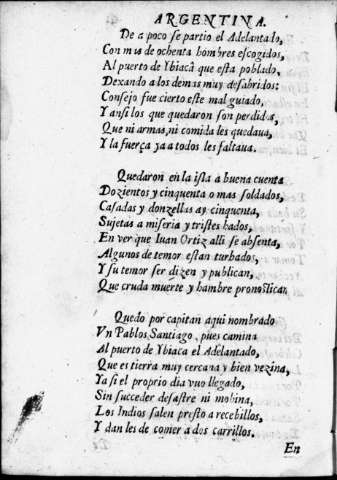 ARGENTINA.
De a poco se partio el Adelantado,
Con mas de ochenta hombres escogidos,
Al puerto de Ybiacà que esta poblado,
Dexando a los demas muy desabridos:
Consejo fue cierto este mal guiado,
Y ansi los que quedaron son perdidos,
Que ni armas, ni comida les quedaua,
Y la fuerça ya a todos les faltaua.
Quedaron en la isla a buena cuenta
Dozientos y cinquenta o mas soldados,
Casadas y donzellas ay cinquenta,
Sujetas a miseria y tristes hados,
En ver que Iuan Ortiz alli se absenta,
Algunos de temor estan turbados,
Y su temor se dizen y publican,
Que cruda muerte y hambre pronostican.
Quedo por capitan aqui nombrado
Vn Pablos Santiago, pues camina
Al puerto de Ybiaca el Adelantado,
Que es tierra muy cercana y bien vezina,
Ya si el proprio dia vuo llegado,
Sin succeder desastre ni mohina,
Los Indios salen presto a recebillos,
Y dan les de comer a dos carrillos.
En